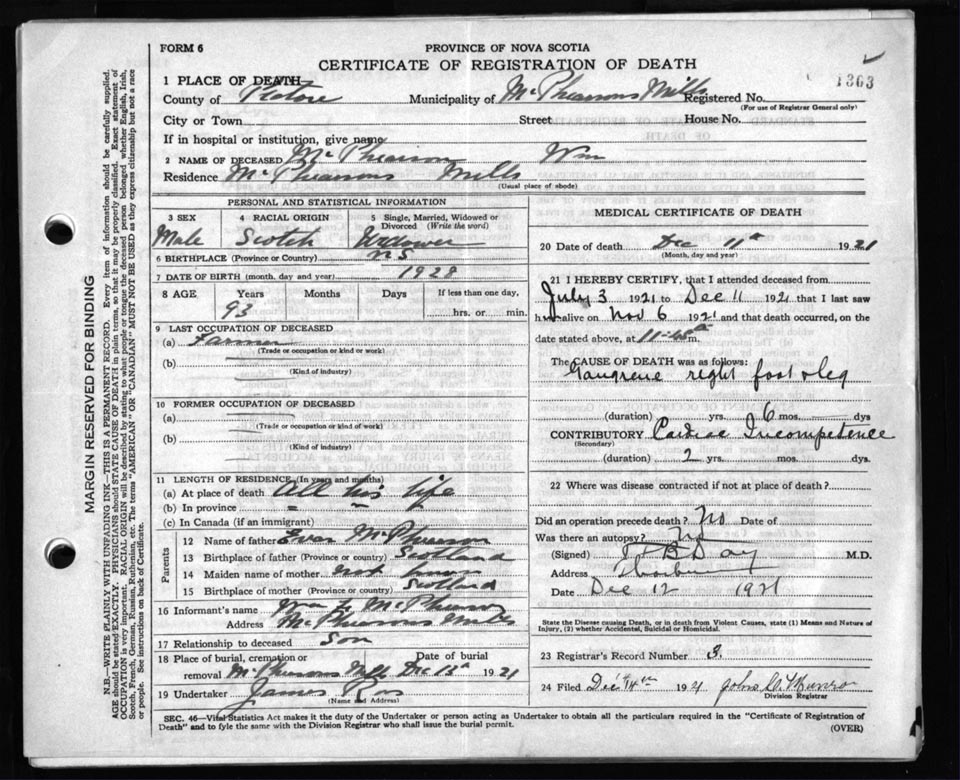 FORM 6
PROVINCE OF NOVA SCOTIA
CERTIFICATE OF REGISTRATION OF DEATH
1363
1 PLACE OF DEATH
County of Pictou Municipality of McPhearsons Mills Registered No.
(For use of Registrar General only)
City or Town Street House No.
If in hospital or institution, give name
2 NAME OF DECEASED McPhearson Wm
Residence McPhearsons Mills
(Usual place of abode)
PERSONAL AND STATISTICAL INFORMATION
3 SEX 4 RACIAL ORIGIN 5 Single, Married, Widowed or Divorced (Write the word)
Male Scotch Widower
6 BIRTHPLACE (Province or Country) N S
7 DATE OF BIRTH (month, day and year) 1928
8 AGE Years Months Days If less than one day,
93 hrs. or min.
9 LAST OCCUPATION OF DECEASED
(a) Farmer
(Trade or occupation or kind or work)
(b)
(Kind of industry)
10 FORMER OCCUPATION OF DECEASED
(a)
(Trade or occupation or kind of work)
(b)
(Kind of industry)
11 LENGTH OF RESIDENCE (In years and months)
(a) At place of death All his life
(b) In province " " "
(c) In Canada (if an immigrant)
Parents
12 Name of father Evan McPhearson
13 Birthplace of father (Province or country) Scotland
14 Maiden name of mother not known
15 Birthplace of mother (Province or country) Scotland
16 Informant's name Wm McPhearson
Address McPhearsons Mills
17 Relationship to deceased Son
18 Place of burial, cremation or removal McPhearsons Mills Date of burial Dec 13th 1921
19 Undertaker James Ross
(Name and Address)
MEDICAL CERTIFICATE OF DEATH
20 Date of death Dec 11th 1921
(Month, day and year)
21 I HEREBY CERTIFY, that I attended deceased from
July 3 1921 to Dec 11 1921 that I last saw
him alive on Nov 6 1921 and that death occurred, on
date stated above, at 11-45 m.
The CAUSE OF DEATH was as follows:
Gangrene right foot & leg
(duration) yrs. 6 mos. dys
CONTRIBUTORY Cardiac Incompetence
(Secondary)
(duration) 2 yrs. mos. dys.
22 Where was disease contracted if not at place of death?
Did an operation precede death? No Date of
Was there an autopsy? No
(Signed) Day M.D.
Address Thorburn
Date Dec 12 1921
State the Disease causing Death, or in death from Violent Causes, state (1) Means and Nature of
Injury, (2) whether Accidental, Suicidal or Homicidal.
23 Registrar's Record Number 8.
24 Filed Dec 14th 192 John Munro
Division Registrar
SEC. 46—Vital Statistics Act makes it the duty of the Undertaker or person acting as Undertaker to obtain all the particulars required in the "Certificate of Registration of
Death" and to fyle the same with the Division Registrar who shall issue the burial permit.
(OVER)
MARGIN RESERVED FOR BINDING
N.B.—WRITE PLAINLY WITH UNFADING INK—THIS IS A PERMANENT RECORD. Every item of information should be carefully supplied.
AGE should be stated EXACTLY. PHYSICIANS should STATE CAUSE OF DEATH in plain terms, so that it may be properly classified. Exact statement of
OCCUPATION is very important. RACIAL ORIGIN will be described by stating to what people or tongue the deceased person belonged whether English, Irish,
Scotch, French, German, Russian, Ruthenian, etc. The terms "AMERICAN" OR "CANADIAN" MUST NOT BE USED as they express citizenship but not a race
or people. See instructions on back of Certificate.